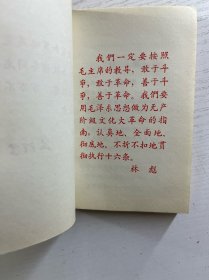 我們一定要按照
毛主席的教导，敢于斗
爭，敢于革命，善于斗
爭，善于革命。我們要
用毛泽东思想做为无产
阶級文化大革命的指
南，认真地、全面地、
彻底地、不折不扣地貫
彻执行十六条。
林彪